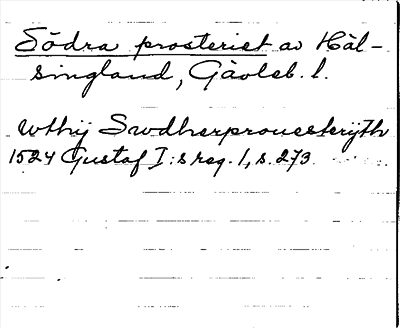 Södra prosteriet av Häl-
singland, Gävleb. l.
wthij Swdherprouesterijth
1524 Gustaf I:s reg. 1, s. 273